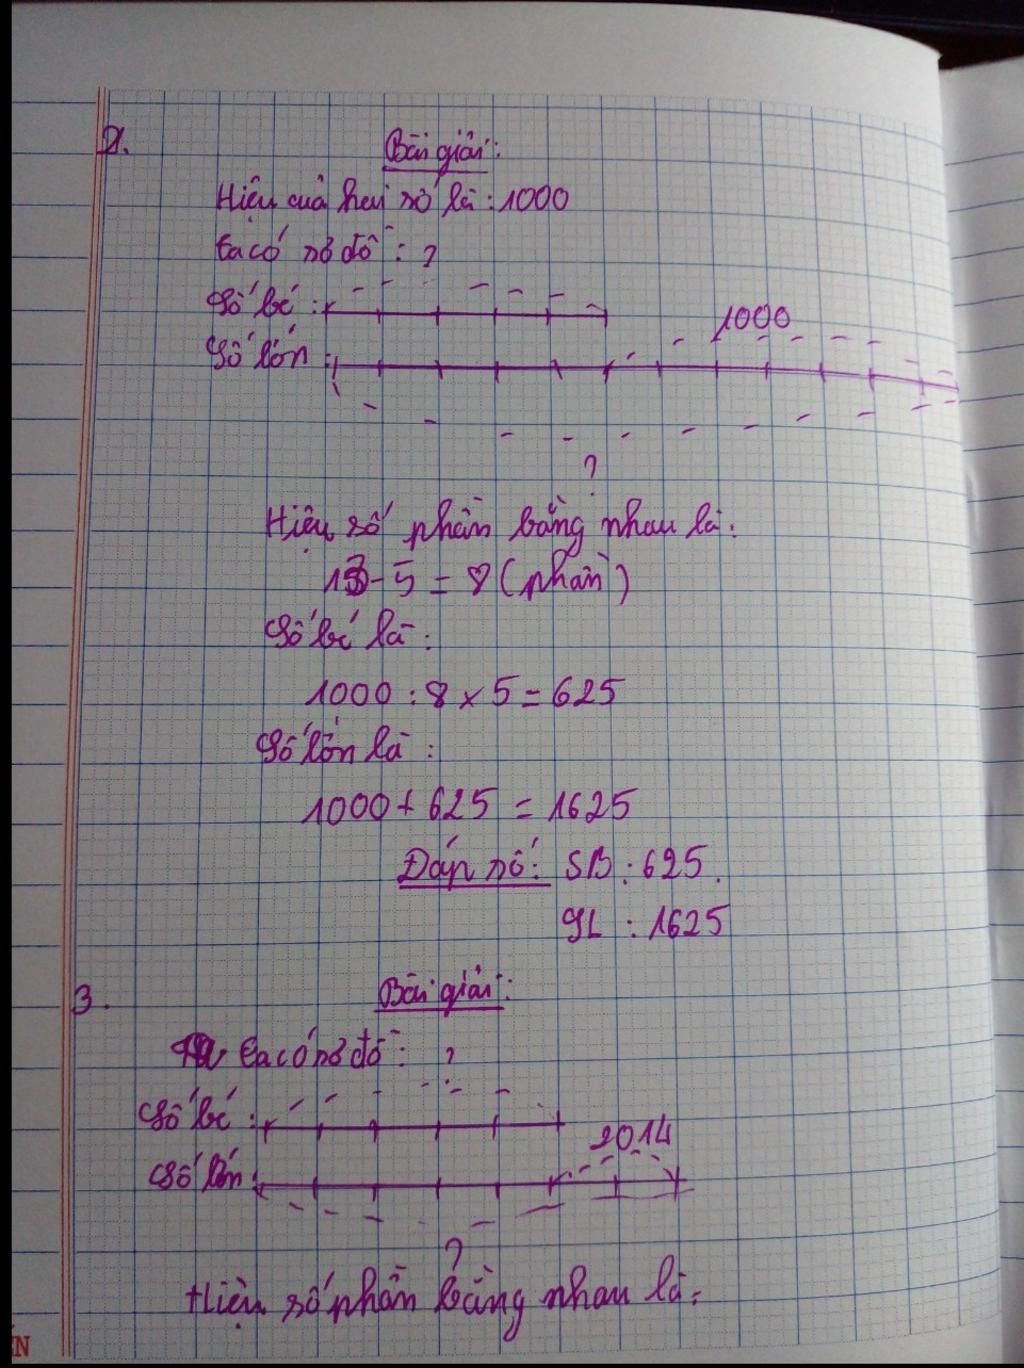 2. Bài giải:
Hiệu của hai số là : 1000
Ta có sơ đồ : ?
Số bé :
1000
Số lớn :
?
Hiệu số phần bằng nhau là:
13 - 5 = 8 (phần)
Số bé là :
1000 : 8 x 5 = 625
Số lớn là :
1000 + 625 = 1625
Đáp số: SB : 625.
SL : 1625
3. Bài giải:
Ta có sơ đồ : ?
Số bé :
2014
Số lớn :
?
Hiệu số phần bằng nhau là: